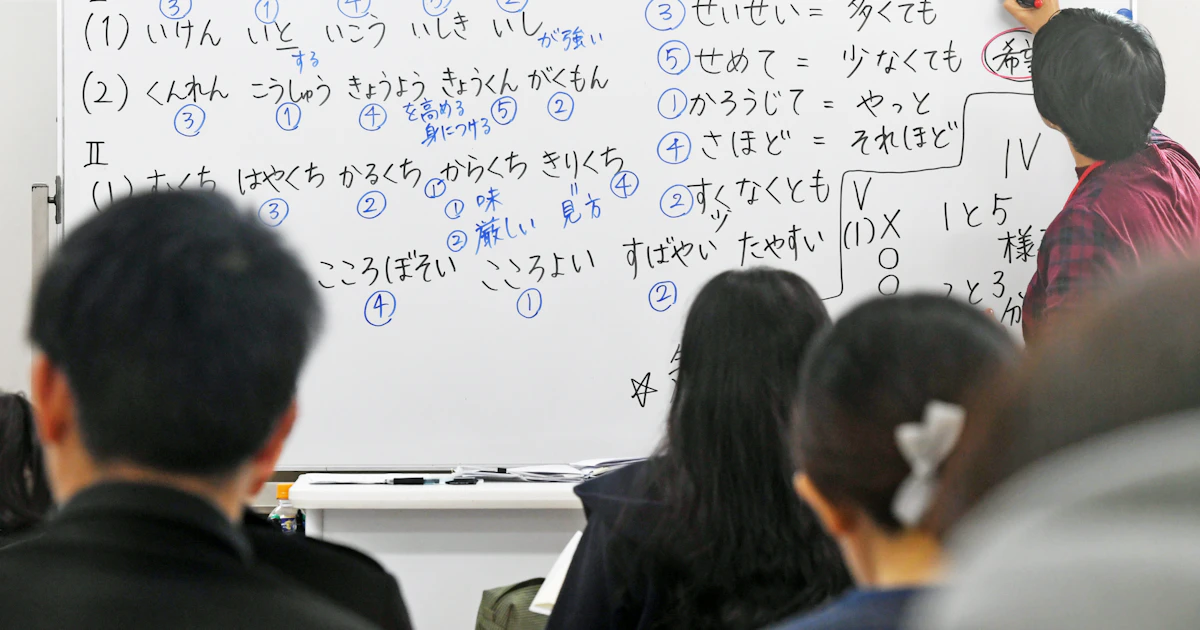 ③ ① ④ ⑤ ②
(1) いけん いと いこう いしき いし が強い
する
(2) くんれん こうしゅう きょうよう きょうくん がくもん
③ ① ④ を高める ⑤ ②
身につける
Ⅱ
(1) むくち はやくち かるくち からくち きりくち
③ ② ① ④
① 味
② 厳しい 見方
こころぼそい こころよい すばやい たやすい
④ ① ②
③ せいぜい = 多くても
⑤ せめて = 少なくても
① かろうじて = やっと
④ さほど = それほど
② すくなくとも
Ⅳ
1と5
様
2と3
分
Ⅴ
(1) X
○
○
☆